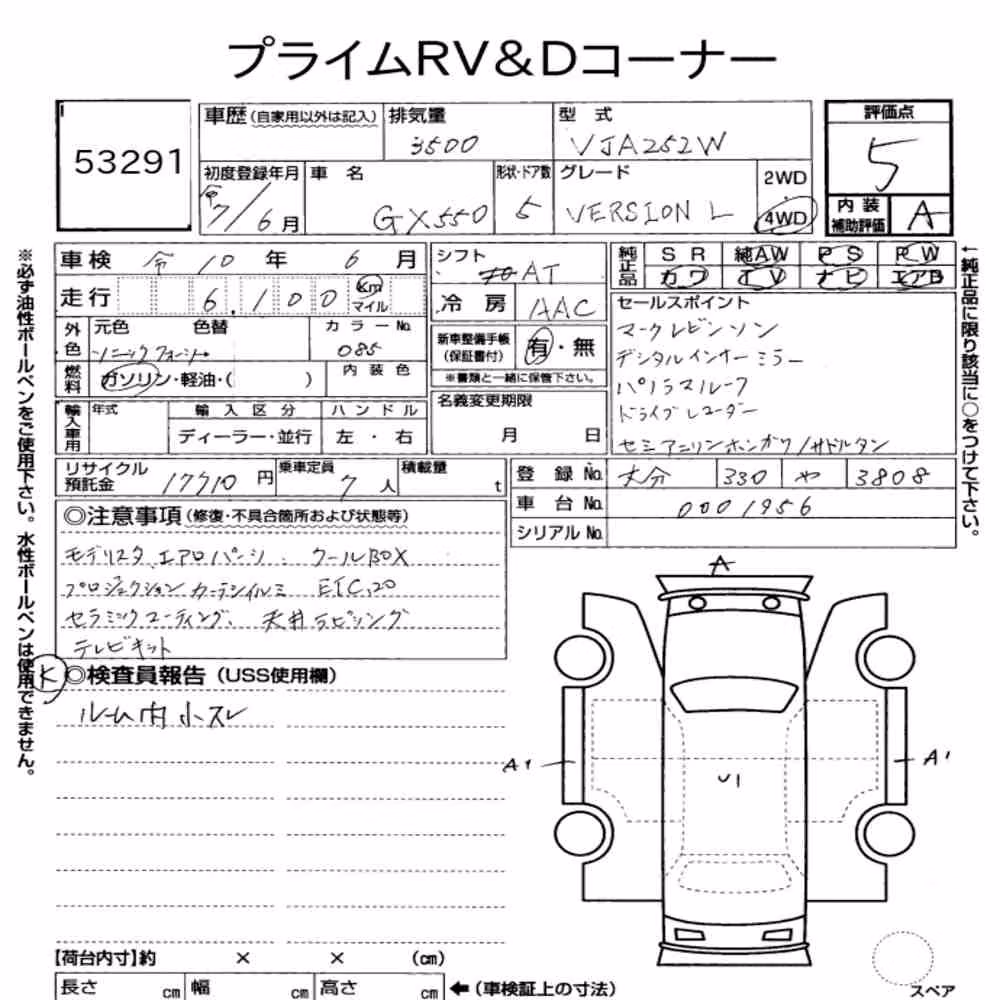 プライムRV&Dコーナー
53291
車歴(自家用以外は記入) 排気量 3500 型式 VJA252W
初度登録年月 令7/6月 車名 GX550 形状・ドア数 5 グレード VERSION L 2WD・4WD
評価点 5
内装補助評価 A
車検 令10年6月
走行 6,100 km マイル
外色 元色 色替 カラーNo. ソニッククォーツ 085
燃料 ガソリン・軽油・( ) 内装色
輸入車用 年式 輸入区分 ディーラー・並行 ハンドル 左・右
シフト AT
冷房 AAC
新車整備手帳(保証書付) 有・無
※書類と一緒に保管下さい。
名義変更期限 月 日
純正品 SR 純AW PS PW
カワ TV ナビ エアB
セールスポイント
マークレビンソン
デジタルインナーミラー
パノラマルーフ
ドライブレコーダー
セミアニリンホンガワ/サドルタン
リサイクル預託金 17710円 乗車定員 7人 積載量 t
登録No. 大分 330 や 3808
車台No. 0001956
シリアルNo.
◎注意事項(修復・不具合箇所および状態等)
モデリスタエアロパーツ、クールBOX
プロジェクションカーテシイルミ ETC2.0
セラミックコーティング、天井ラッピング
テレビキット
K ◎検査員報告(USS使用欄)
ルーム内小スレ
A
A1
U1
A1
【荷台内寸】約 × × (cm)
長さ cm 幅 cm 高さ cm ←(車検証上の寸法)
スペア
※必ず油性ボールペンをご使用下さい。水性ボールペンは使用できません。
←純正品に限り該当に○をつけて下さい。